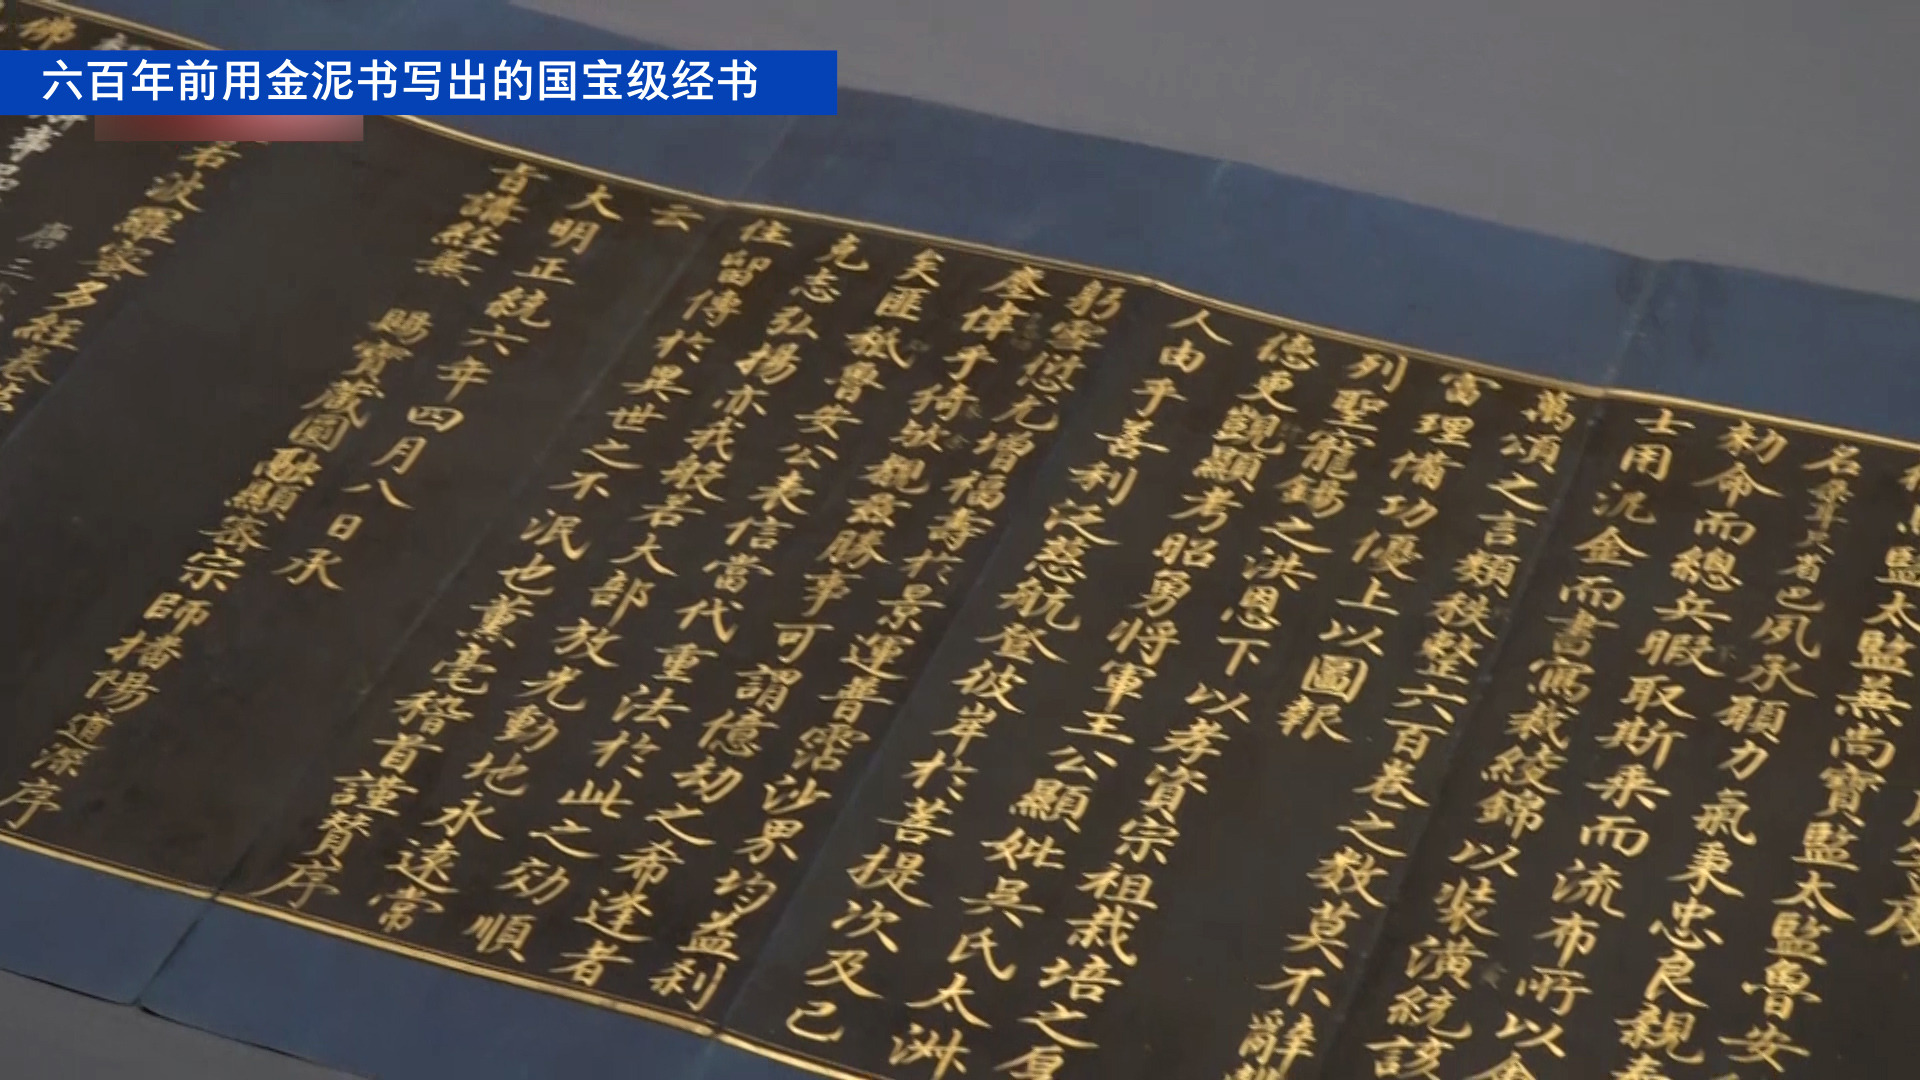 六百年前用金泥书写出的国宝级经书
監太監蕪尚寶監太監魯安
名桑耳只省巴夙承願力氣秉忠良親
勑命而總兵暇取斯来而流布所以
士用泥金而書寫裁綾錦以裝潢統該
萬頌之言類秩整六百巻之数莫不辭
富理備功優上以圖報
列聖寵錫之洪恩下以孝資宗祖栽培之厚
德更覬顯考昭勇将軍王公顯妣吳氏太淑
人由乎善利泛慈航登彼岸於菩提次及已
躬雪愆尤增福壽於景運普霑沙界均益利
偉乎猗欤覩茲勝事可謂億劫之希逢者
矣匪秪魯安公表信當代重法於此之効順
克志弘揚亦我般若大部放光動地永遠常
住畱傳於異世之不泯也薰毫稽首謹賛序
云
大明正統六年四月八日承
講經蕪 賜寳藏圓融顯密宗師播陽道深序
若波羅蜜多經卷
佛
唐三